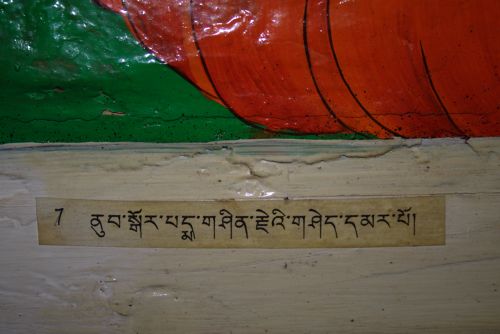 7 ནུབ་སྒོར་པདྨ་གཤིན་རྗེའི་གཤེད་དམར་པོ།